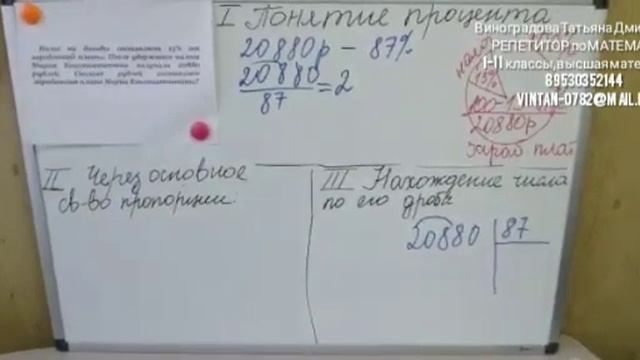 Налог на доходы составляет 13% от
заработной платы. После удержания налога
Мария Константиновна получила 20880
рублей. Сколько рублей составляет
заработная плата Марии Константиновны?
I Понятие процента
20880р – 87%
20880
87
=2
13%
100-13
20880р
зараб плат
Виноградова Татьяна Дми
РЕПЕТИТОР по МАТЕМА
1-11 классы, высшая мате
89530352144
VINTAN-0782@MAIL.
II Через основное
св-во пропорции:
III Нахождение числа
по его дроби
20880 87